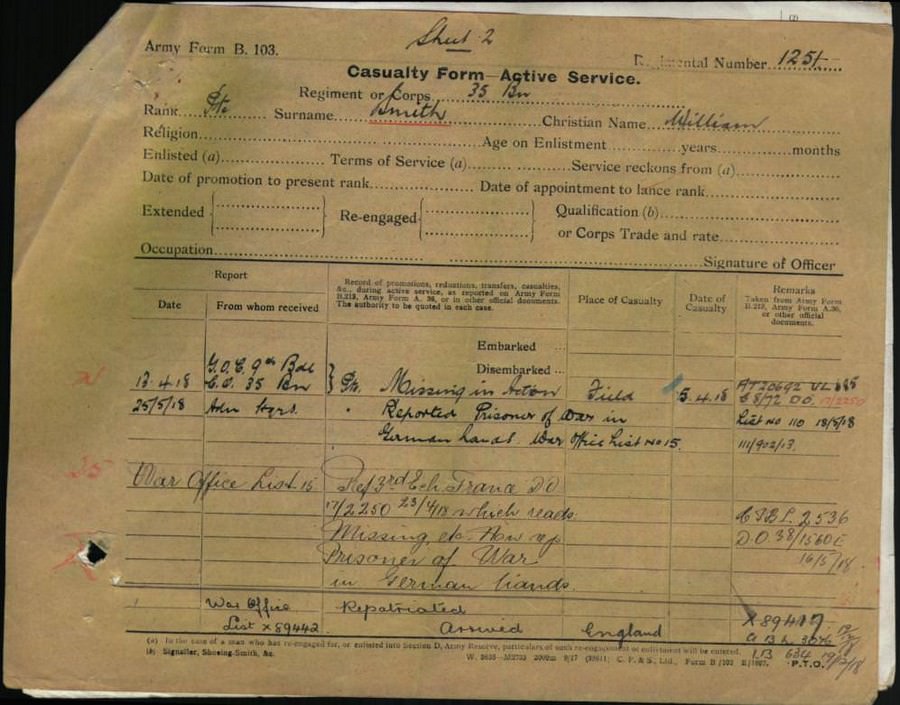 Sheet 2
Army Form B. 103.
Regimental Number 1251
Casualty Form—Active Service.
Regiment or Corps 35 Bn
Rank Pte Surname Smith Christian Name William
Religion Age on Enlistment years months
Enlisted (a) Terms of Service (a) Service reckons from (a)
Date of promotion to present rank Date of appointment to lance rank
Extended Re-engaged Qualification (b)
or Corps Trade and rate
Occupation Signature of Officer
Report
Date From whom received
Record of promotions, reductions, transfers, casualties,
&c., during active service, as reported on Army Form
B.213, Army Form A. 36, or in other official documents.
The authority to be quoted in each case.
Place of Casualty
Date of
Casualty
Remarks
Taken from Army Form
B.213, Army Form A.36,
or other official
documents.
Embarked
Disembarked
G.O.C. 9th Bde
13.4.18 C.O. 35 Bn Pte. Missing in Action Field 5.4.18
25/5/18 Adm Hqrs. " Reported Prisoner of War in List No 110 18/5/18
German hands War Office List No 15. 111/902/13.
War Office List 15 Ref 3rd Ech France DO
17/2250 23/4/18 which reads
Missing etc. Now rep
Prisoner of War
in German hands.
2536
D.O 38/1560
16/5/18
War Office Repatriated
List X89442. Arrived England
(a) In the case of a man who has re-engaged for, or enlisted into Section D, Army Reserve, particulars of such re-engagement or enlistment will be entered.
(b) Signaller, Shoeing-Smith, &c.
P.T.O.